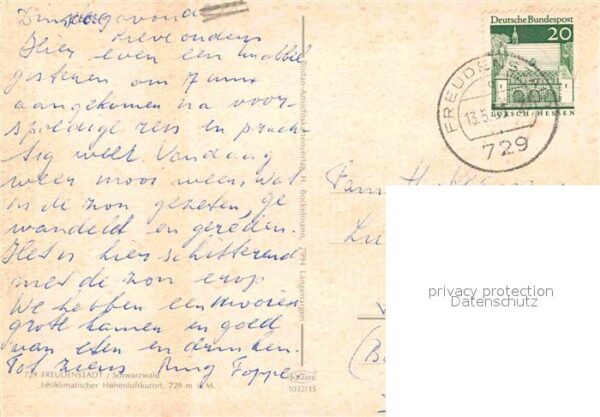 Dinsdagavond
Lieve ouders
Hier even een
gisteren om 7 uur
aangekomen na voor-
spoedige reis en prach-
tig weer. Vandaag
weer mooi weer, wat
in de zon gezeten, ge
wandeld en gereden.
Het is hier schitterend
met de zon erop
We hebben een mooie
grote kamer en goed
van eten en drinken.
Tot ziens Foppe
729 FREUDENSTADT / Schwarzwald
heilklimatischer Höhenluftkurort, 728 m ü. M.
Bodan-Ansichtskartenverlag H. Bockelmann, 7994 Langenargen
1032/15
Deutsche Bundespost
20
LORSCH/HESSEN
FREUDENS
13.5.
729
Fam.
privacy protection
Datenschutz